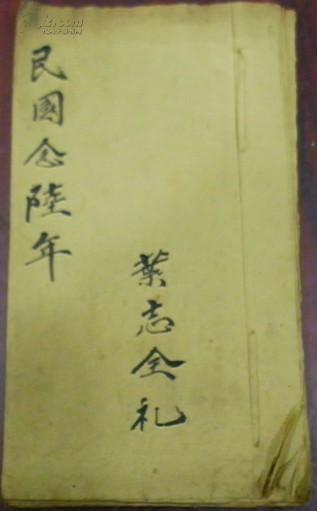 民國念陸年
葉志全礼